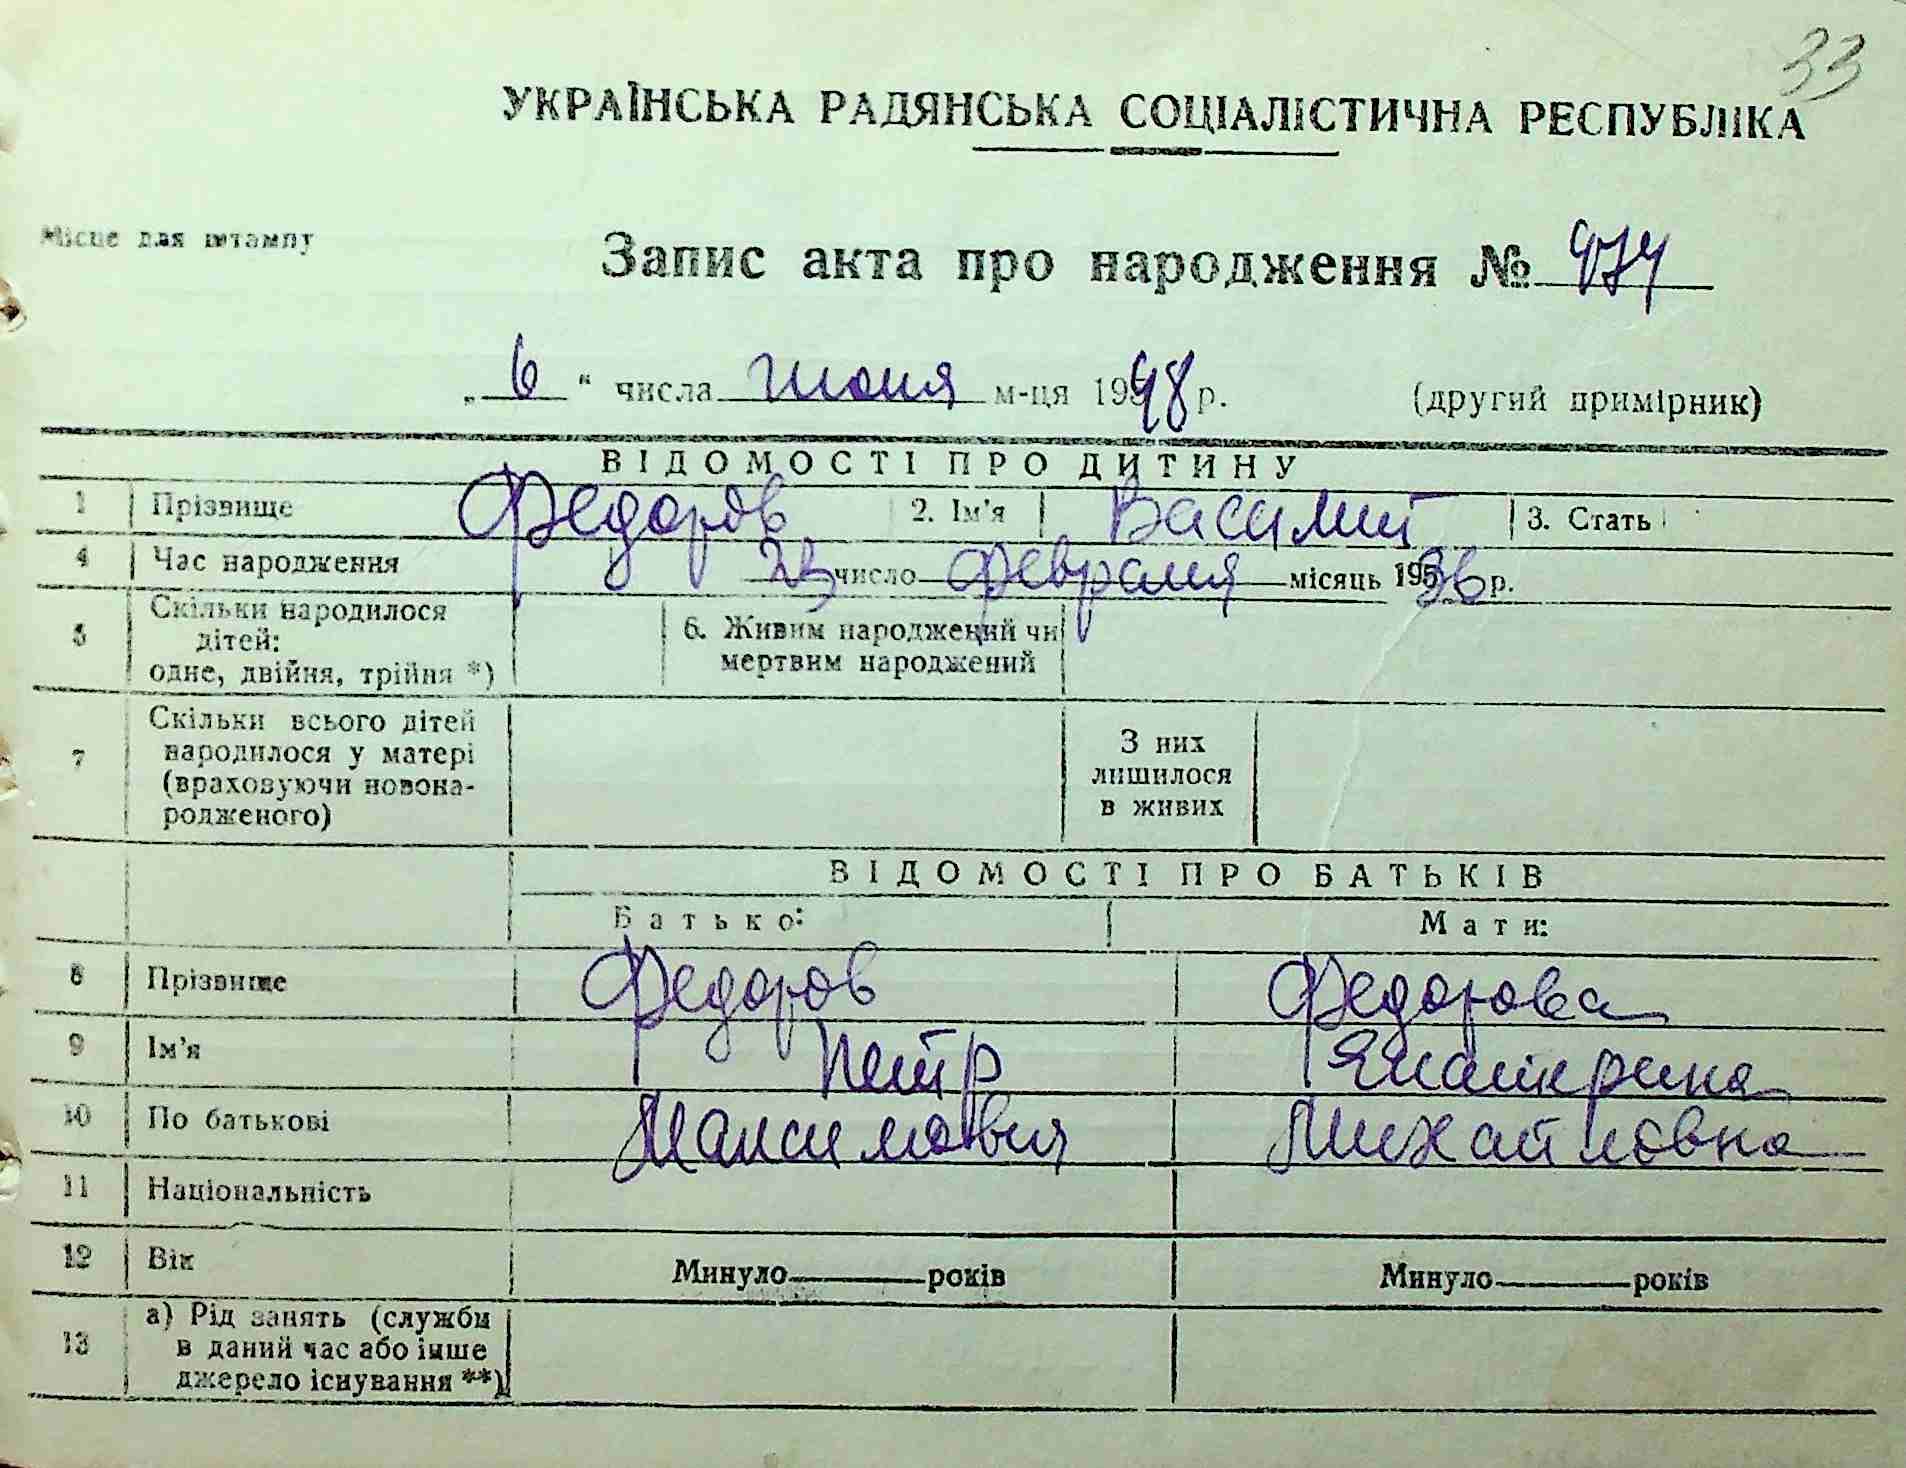 33
УКРАЇНСЬКА РАДЯНСЬКА СОЦІАЛІСТИЧНА РЕСПУБЛІКА
Місце для штампу
Запис акта про народження № 474
„ 6 “ числа июня м-ця 1948 р. (другий примірник)
ВІДОМОСТІ ПРО ДИТИНУ
1 Прізвище Федоров 2. Ім'я Василий 3. Стать
4 Час народження 23 число февраля місяць 1936 р.
5 Скільки народилося дітей: одне, двійня, трійня *) 6. Живим народжений чи мертвим народжений
7 Скільки всього дітей народилося у матері (враховуючи новонародженого) З них лишилося в живих
ВІДОМОСТІ ПРО БАТЬКІВ
Батько: Мати:
8 Прізвище Федоров Федорова
9 Ім'я Петр Екатерина
10 По батькові Максимович Михайловна
11 Національність
12 Вік Минуло років Минуло років
13 а) Рід занять (служби в даний час або інше джерело існування **)